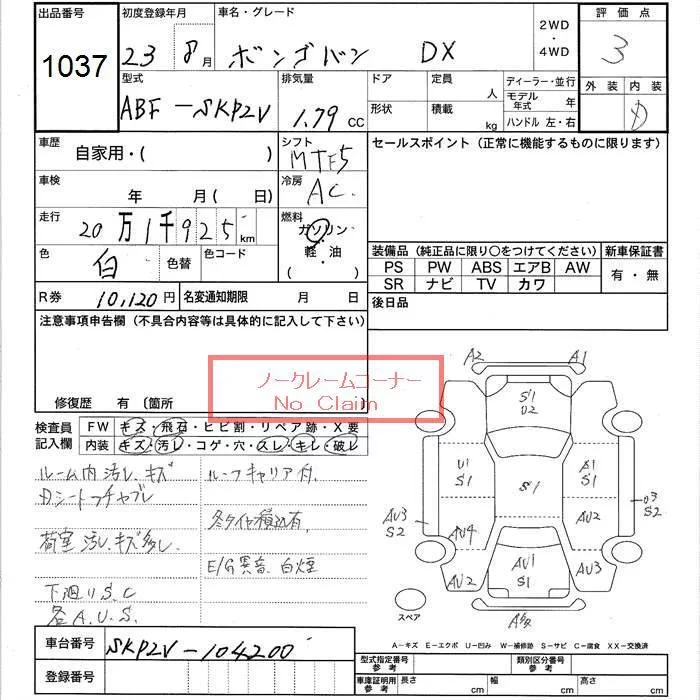 出品番号 初度登録年月 車名・グレード 2WD・4WD 評価点
1037 23 8月 ボンゴバン DX 3
型式 排気量 ドア 定員 人 ディーラー・並行 外装 内装
ABF-SKP2V 1.79 CC 形状 積載 kg モデル年式 年 D
ハンドル 左・右
車歴 自家用・( ) シフト MTF5 セールスポイント (正常に機能するものに限ります)
車検 年 月 ( 日) 冷房 AC.
走行 20万1千925km 燃料 ガソリン・軽油 ( )
色 白 色替 色コード 装備品 (純正品に限り○をつけてください) 新車保証書
PS PW ABS エアB AW 有・無
SR ナビ TV カワ
R券 10,120円 名変通知期限 月 日 後日品
注意事項申告欄 (不具合内容等は具体的に記入して下さい)
ノークレームコーナー
No Claim
修復歴 有 〔箇所 〕
検査員記入欄 FW キズ・飛石・ヒビ割・リペア跡・X要
内装 キズ・汚レ・コゲ・穴・スレ・キレ・破レ
ルーム内汚レ、キズ ルーフキャリア付.
Dシートフチヤブレ
冬タイヤ積込有.
荷室 汚レ、キズ多し.
E/G異音、白煙
下廻りS.C
各A.U.S.
A2 A1
S1
U2
U1
S1
S1
A1
S1
S2
AU3
S2
AU4
AU2
AU2
AU1
S1
AU3
スペア
A-キズ E-エクボ U-凹み W-補修跡 S-サビ C-腐食 XX-交換済
車台番号 SKP2V-104200
登録番号
型式指定番号参考 類別区分番号参考
車庫証明用参考 長さ cm 幅 cm 高さ cm